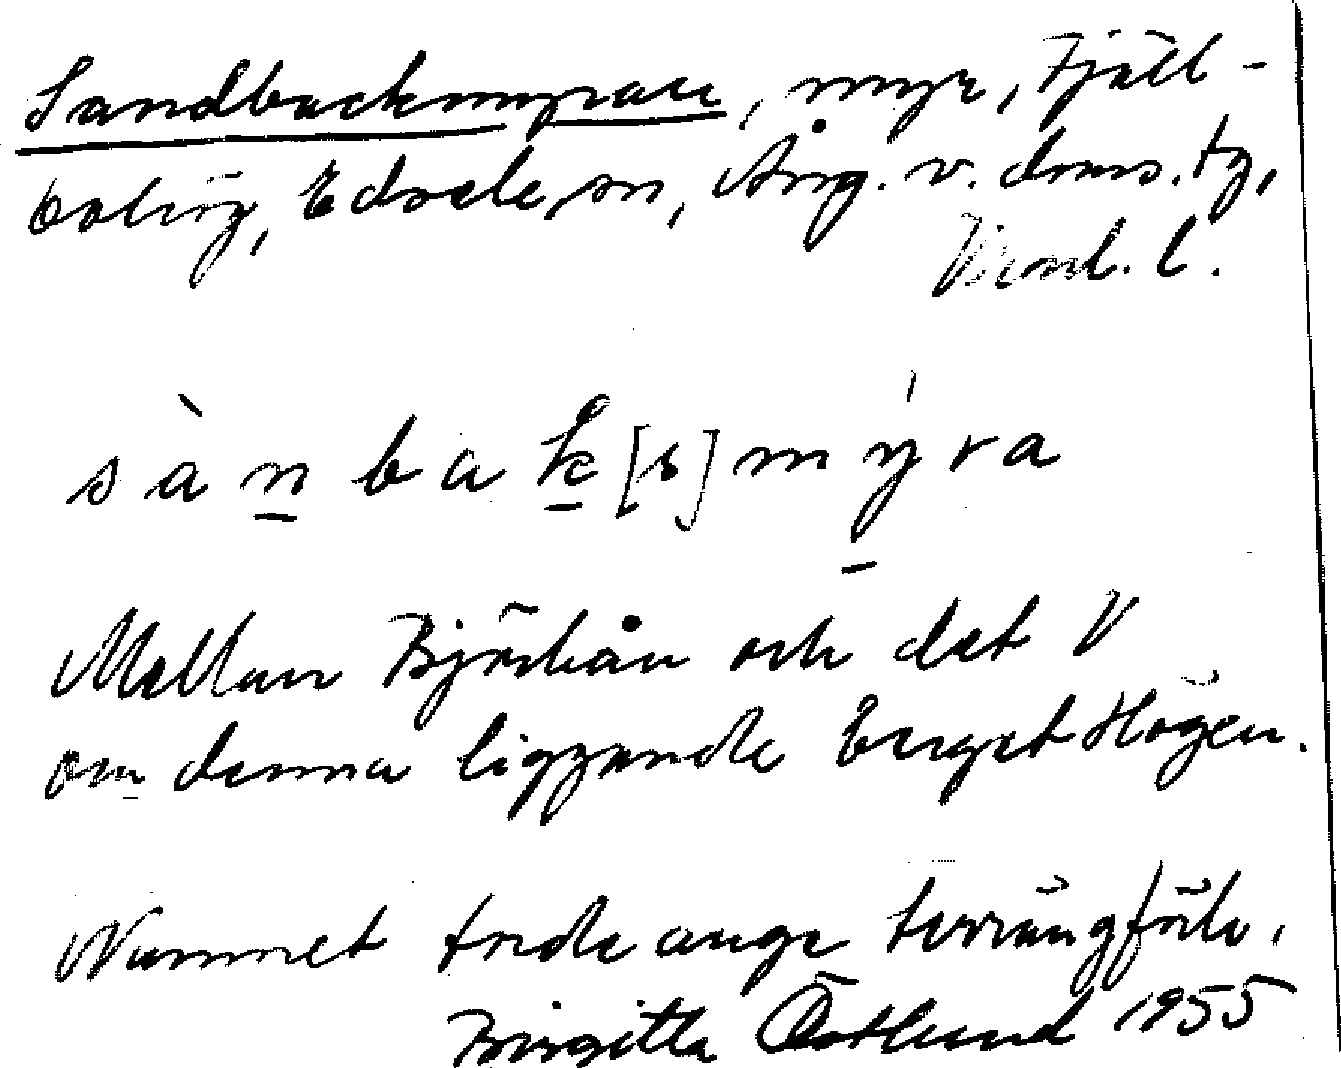 Sandbackmyran, myr, Fjäll-
boling, Edsele sn, Ång. v. doms. tg,
Vnrl. l.
sànbak[s]mýra
Mellan Björkån och det V
om denna liggande berget Högen.
Namnet torde ange terrängförh.
Birgitta Östlund 1955